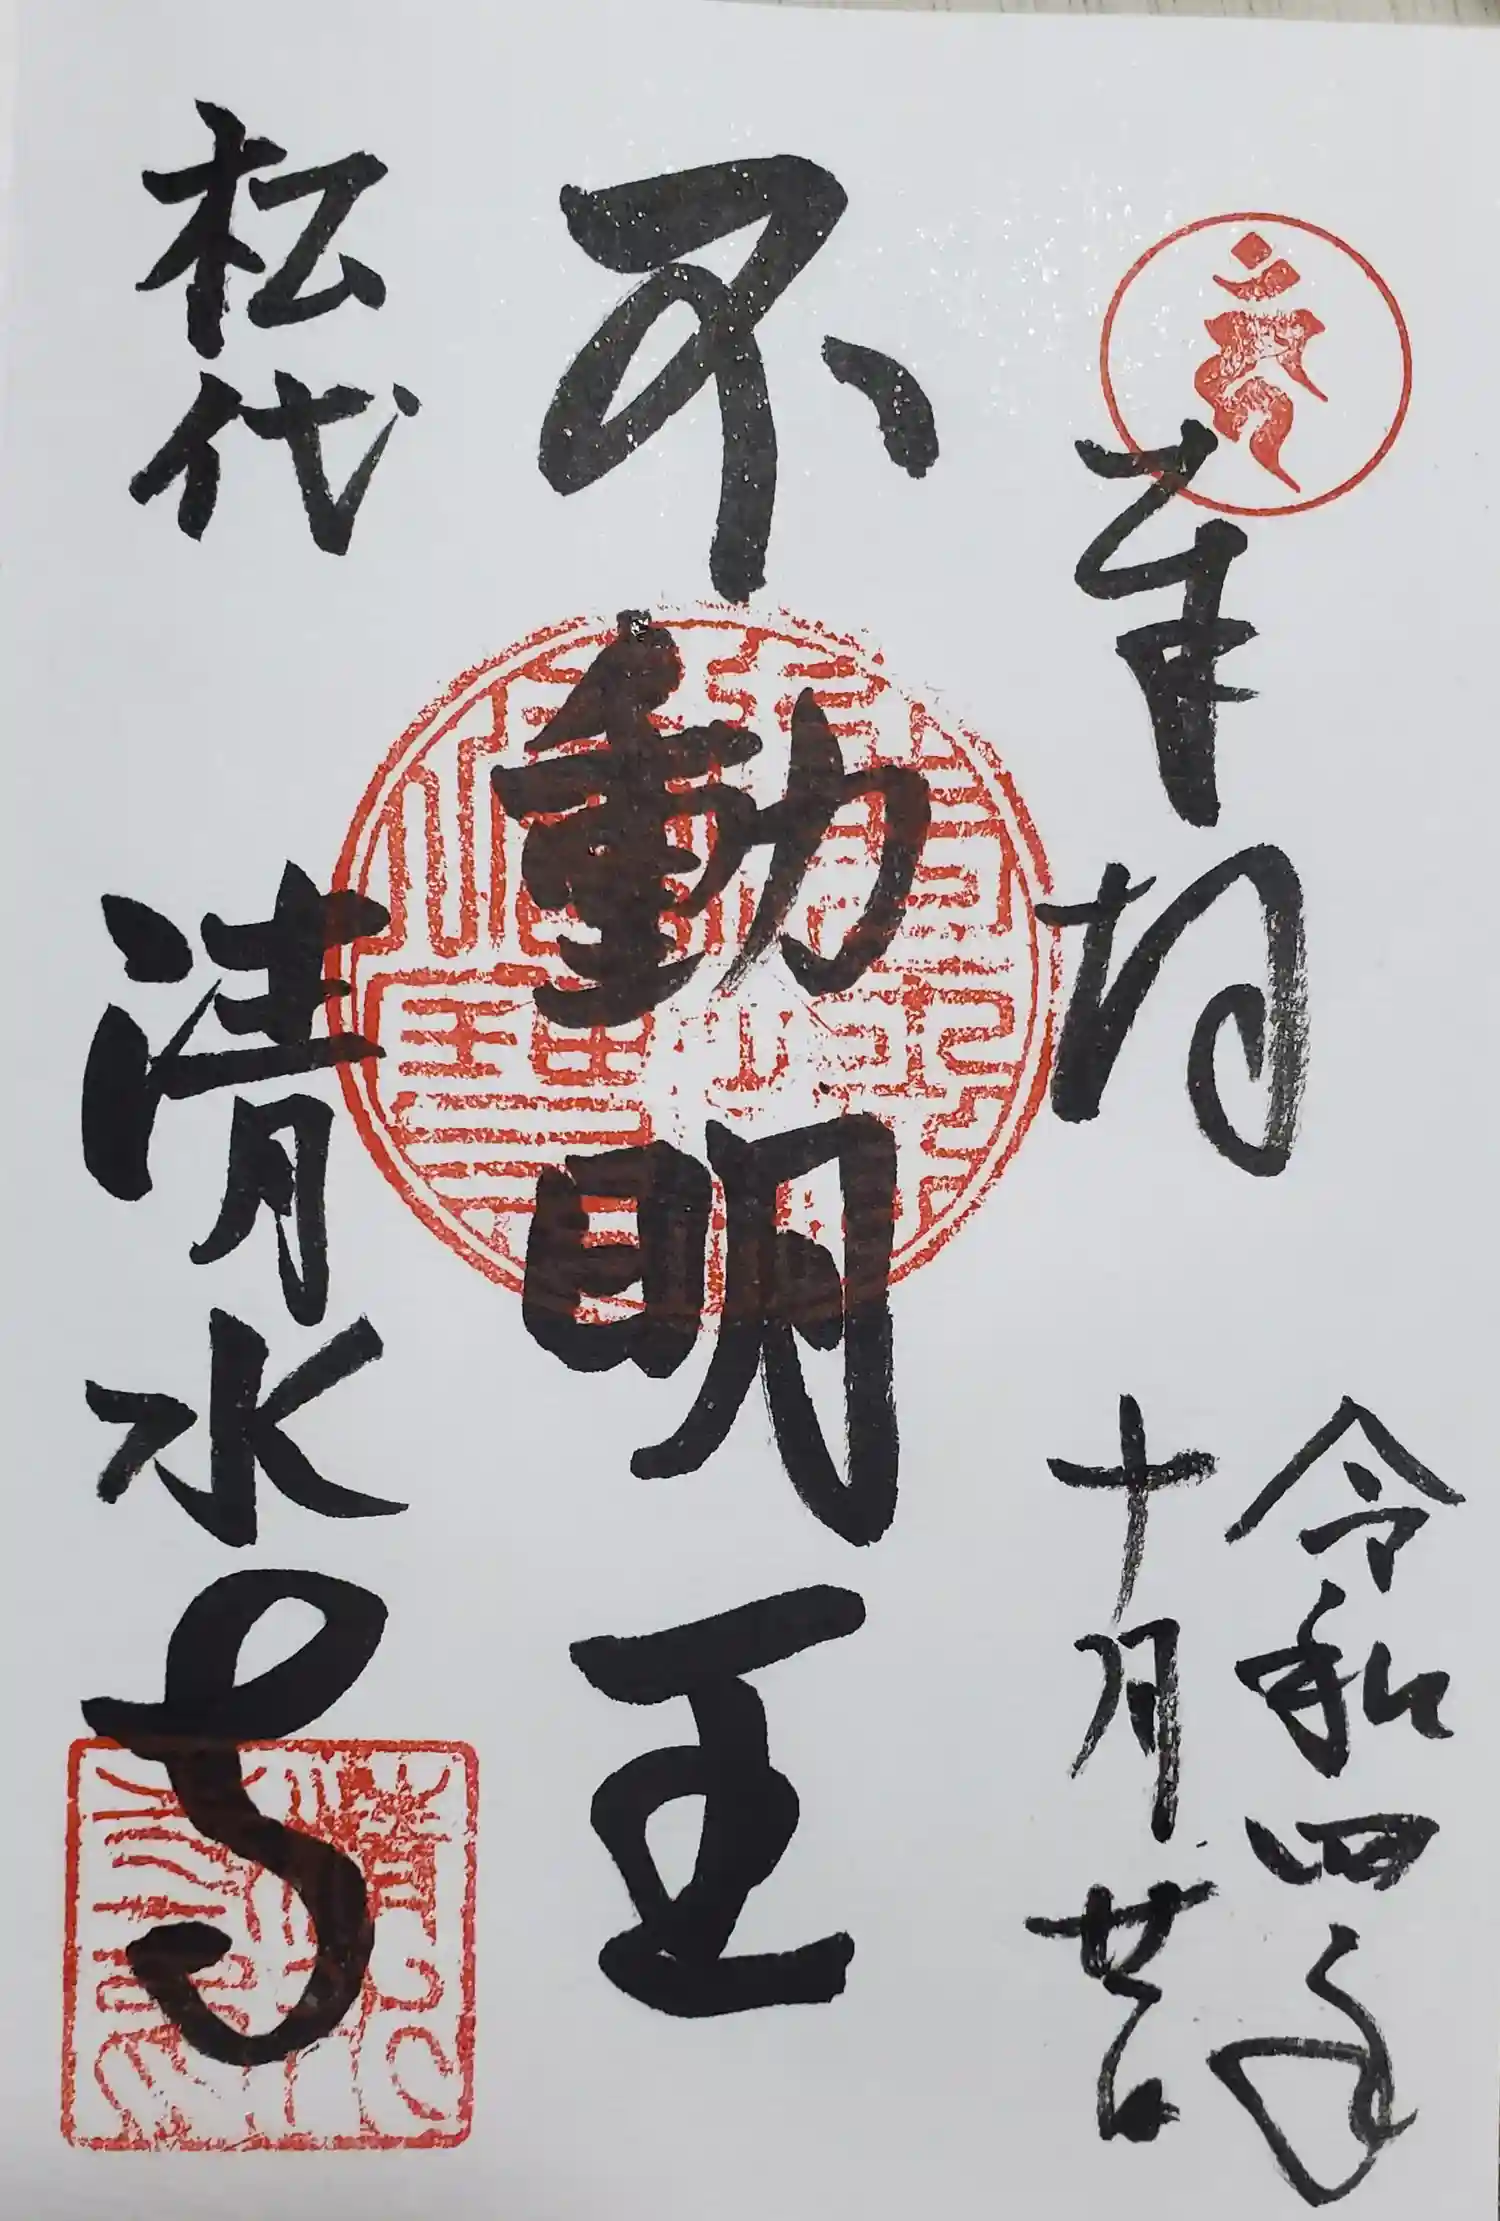 奉拝
令和四年
十月廿日
不動明王
松代
清水寺